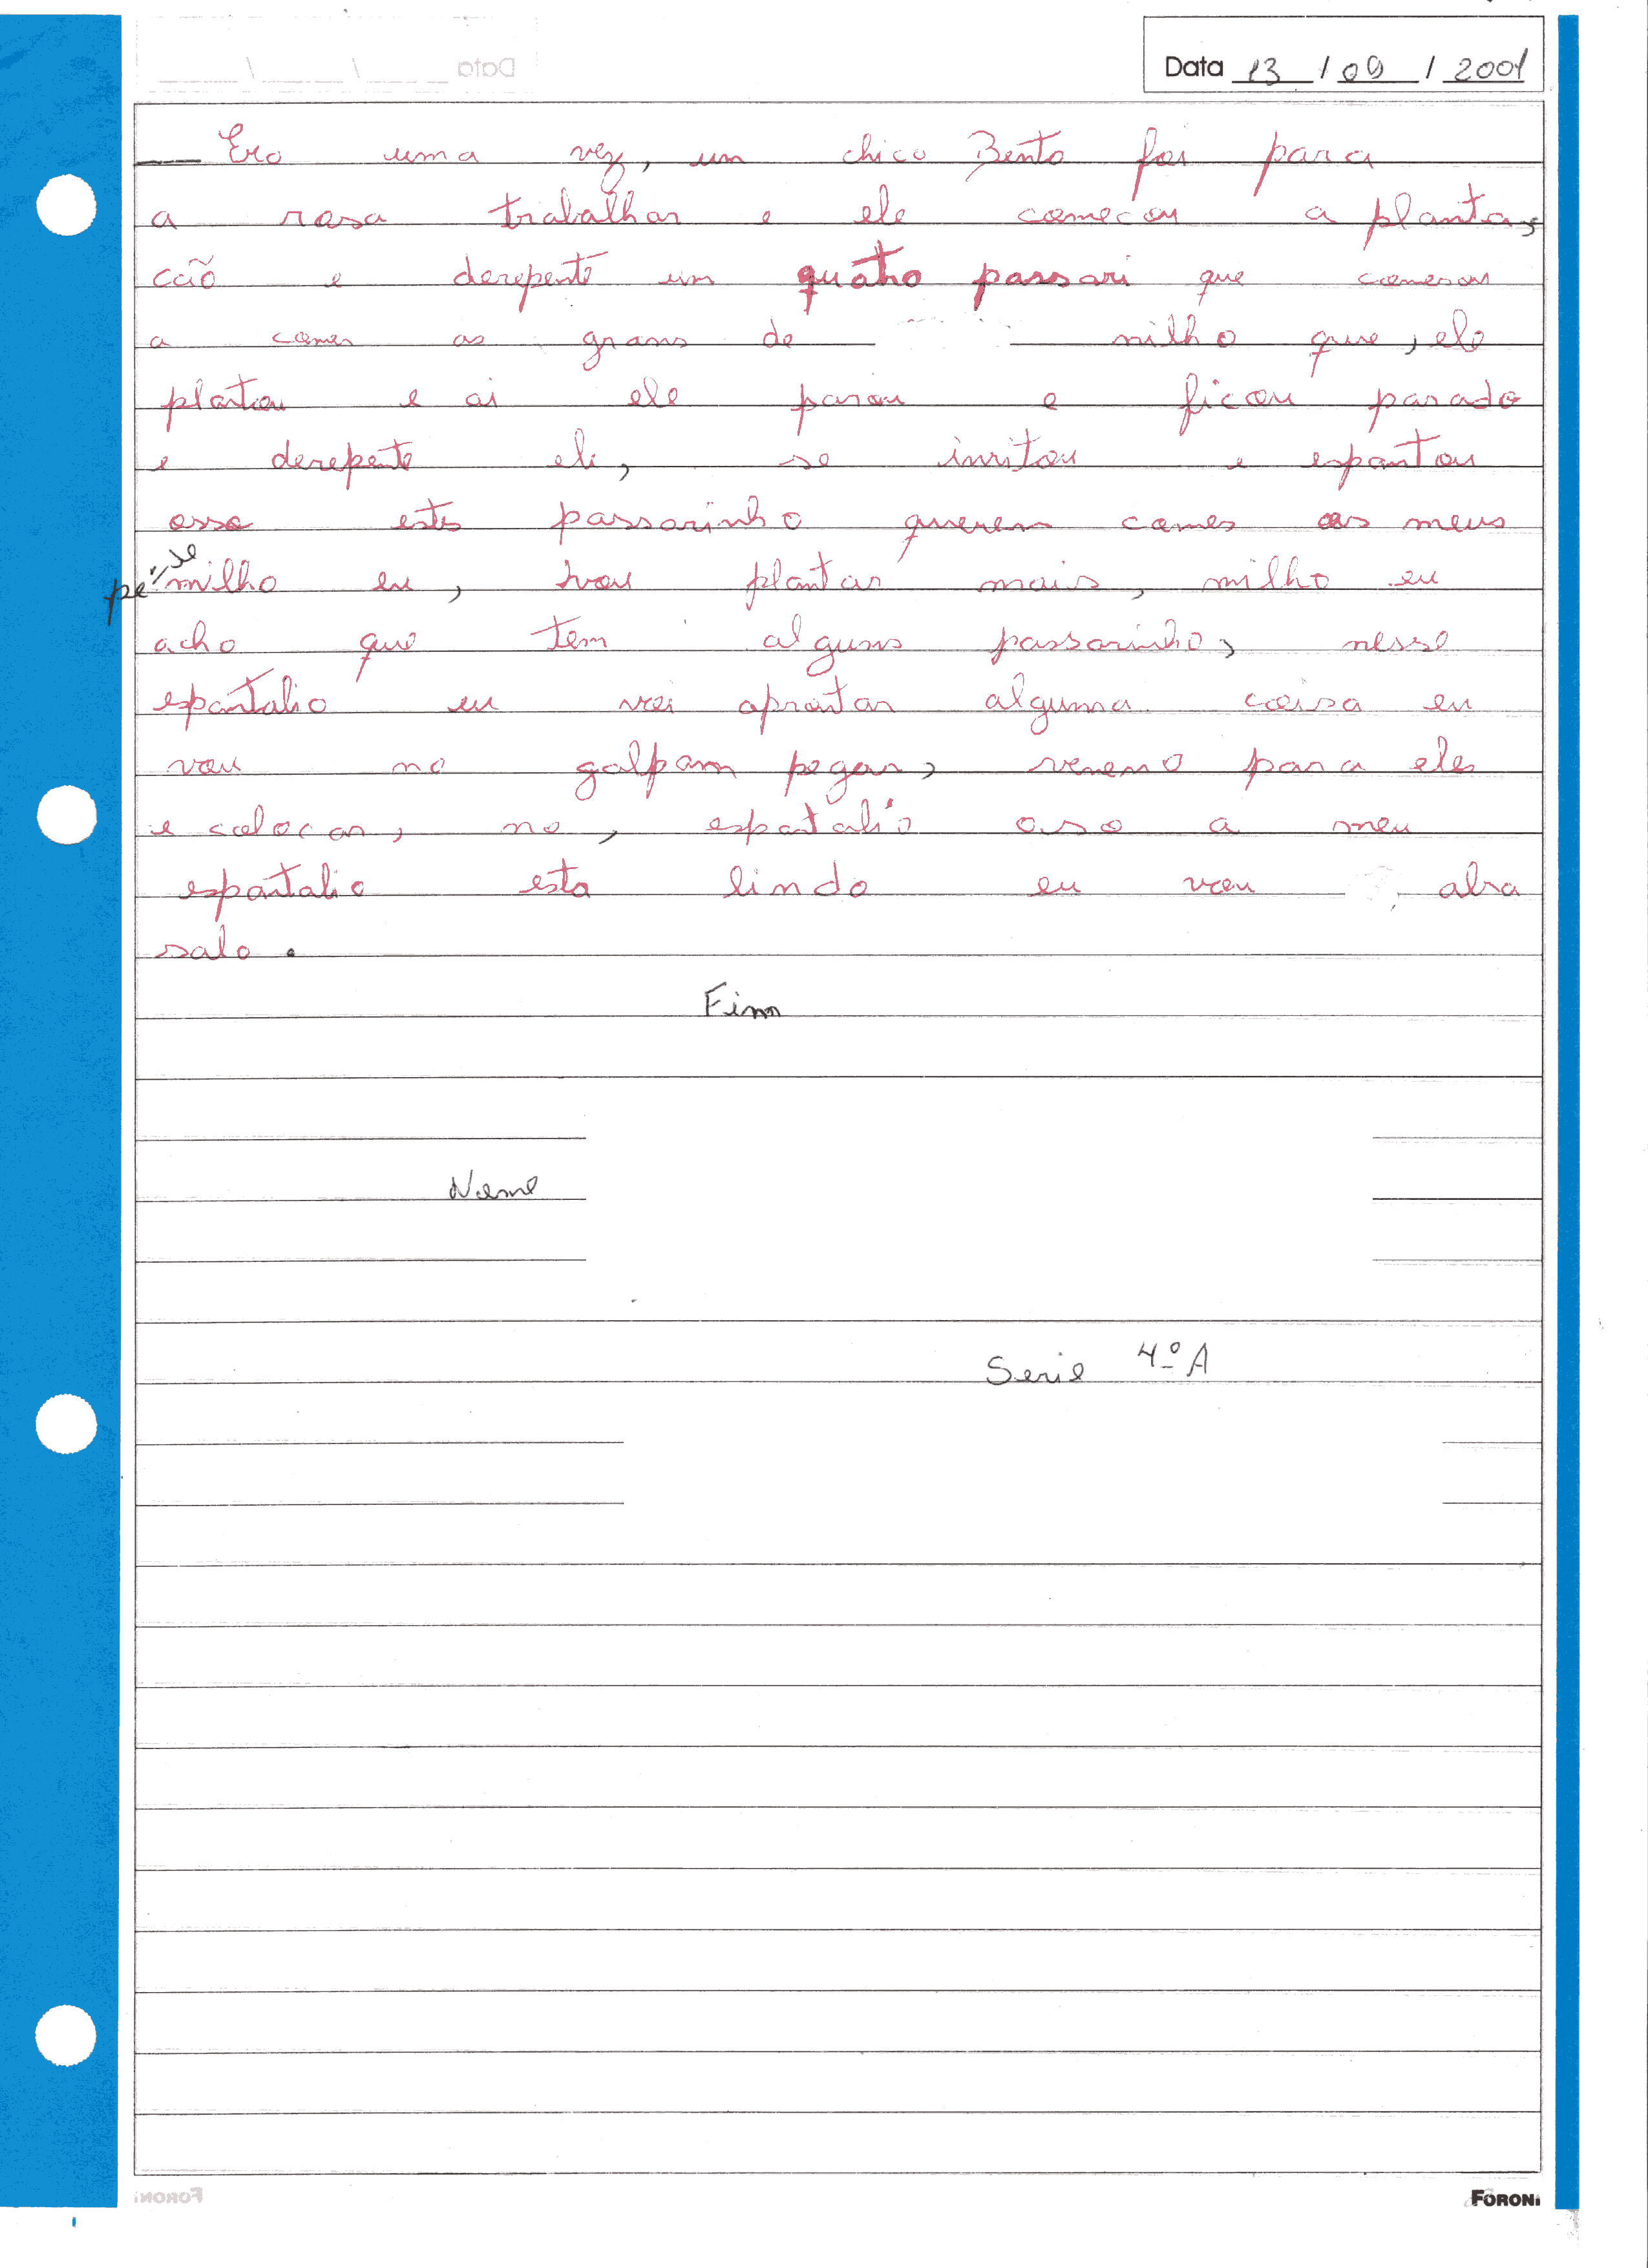 Data 13 / 09 / 2001
Era uma vez, um chico Bento foi para
a rosa trabalhar e ele comecou a planta,
cão e derepente um quatro passari que comesou
a comer as grans de milho que, ele
plantou e ai ele parou e ficou parado
e derepente ele, se irritou e espantou
esse estes passarinho querem comer os meus
pé-de milho eu, vou plantar mais, milho eu
acho que tem alguns passarinho, nesse
espantalio eu voi aprontar alguma coisa eu
vou no galpam pegar, veneno para eles
e colocar, no, espatalio oso a meu
espantalio esta lindo eu vou abra
salo.
Fim
Nome
Serie 4º A
FORONI